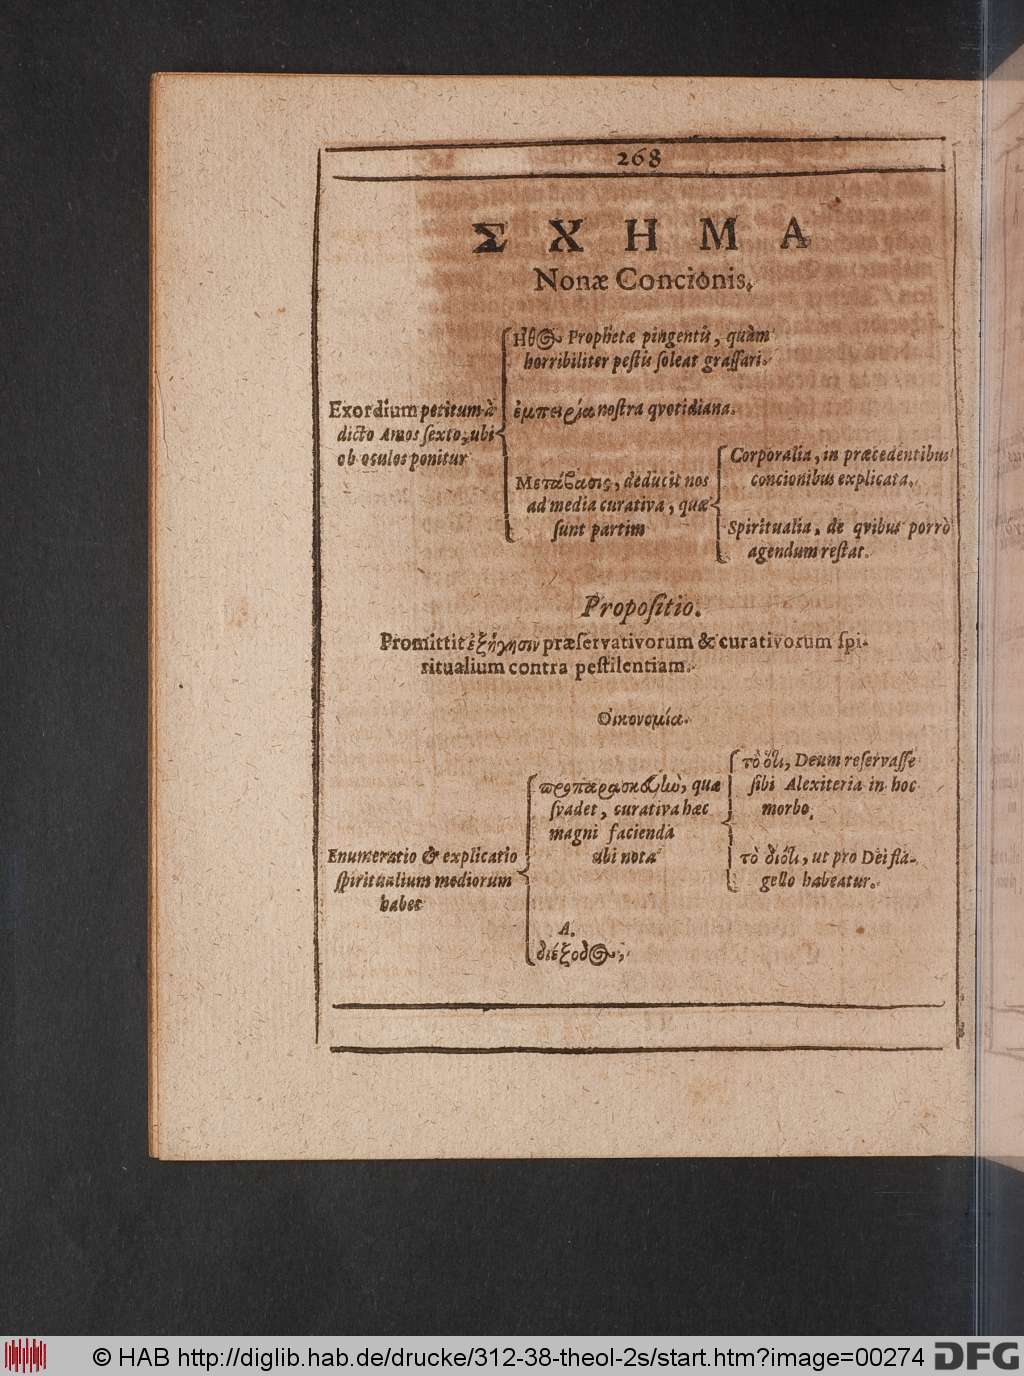 268
ΣΧΗΜΑ
Nonæ Concionis.
Ηθος Prophetæ pingentis, quàm
horribiliter pestis soleat grassari.
Exordium petitum à
dicto Amos sexto, ubi
ob oculos ponitur
ἐμπειρία nostra qvotidiana.
Μετάβασις, deducit nos
ad media curativa, quæ
sunt partim
Corporalia, in præcedentibus
concionibus explicata.
Spiritualia, de qvibus porrò
agendum restat.
Propositio.
Promittit ἐξήγησιν præservativorum & curativorum spi-
ritualium contra pestilentiam.
Οἰκονομία.
Enumeratio & explicatio
spiritualium mediorum
habet
προπαρασκευὼ, quæ
svadet, curativa hæc
magni facienda
ubi nota
τὸ ὅτι, Deum reservasse
sibi Alexiteria in hoc
morbo,
τὸ διότι, ut pro Dei fla-
gello habeatur.
A.
διέξοδος,
© HAB http://diglib.hab.de/drucke/312-38-theol-2s/start.htm?image=00274
DFG